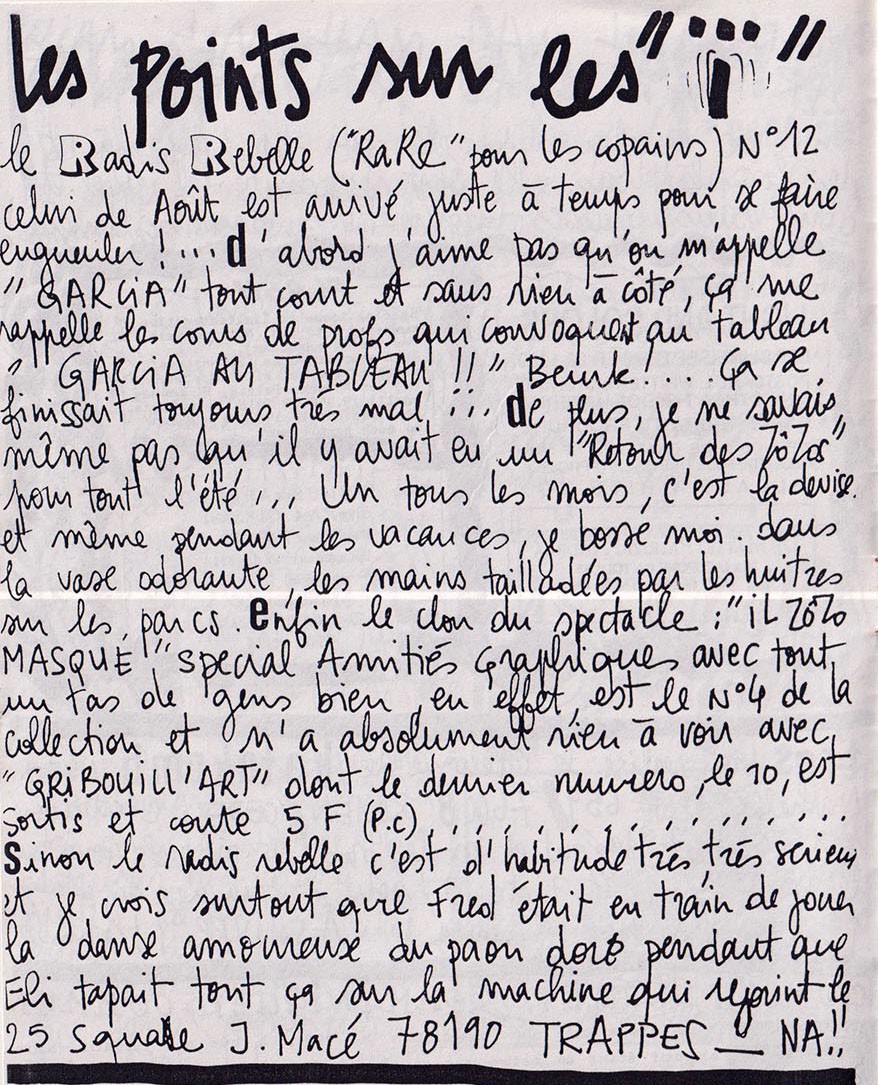 les points sur les "ï"
le Radis Rebelle ("RaRe" pour les copains) N°12
celui de Août est arrivé juste à temps pour se faire
engueuler !... d'abord j'aime pas qu'on m'appelle
"GARCiA" tout court et sans rien à côté, ça me
rappelle les cours de profs qui convoquent au tableau
" GARCiA AU TABLEAU !! " Beurk!.... Ça se
finissait toujours très mal !... de plus, je ne savais
même pas qu'il y avait eu un "Retour des ZôZos"
pour tout l'été ... Un tous les mois, c'est la devise.
et même pendant les vacances, je bosse moi. dans
la vase odorante, les mains tailladées par les huitres
sur les parcs. enfin le clou du spectacle : "iL ZôZo
MASQUÉ" spécial Amitiés Graphiques avec tout
un tas de gens bien, en effet, est le N°4 de la
collection et n'a absolument rien à voir avec
"GRiBOUiLL'ART" dont le dernier numero, le 10, est
sortis et coute 5 F (P.c) . . . . . . . . . . . . . . .
Sinon le radis rebelle c'est d'habitude très très serieux
et je crois surtout que Fred était en train de jouer
la danse amoureuse du paon doré pendant que
Eli tapait tout ça sur la machine qui rejoint le
25 Square J. Macé 78190 TRAPPES _ NA!!